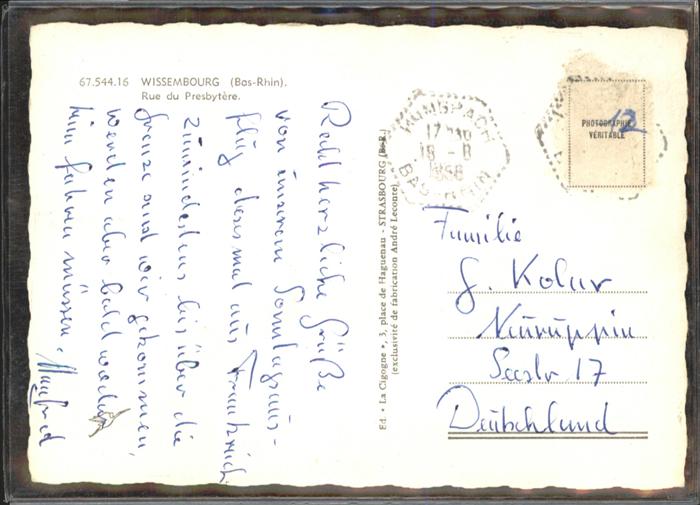 67.544.16 WISSEMBOURG (Bas-Rhin).
Rue du Presbytère.
Recht herzliche Grüße
von unserem Sonntagsaus-
flug diesmal aus Frankreich.
Zumindestens bis über die
Grenze sind wir gekommen,
werden aber bald wieder
heim fahren müssen.
Manfred
Ed. • La Cigogne •, 3, place de Haguenau - STRASBOURG (B.-R.)
(exclusivité de fabrication André Leconte)
HUNSPACH
17
18 - 8
1968
BAS-RHIN
PHOTOGRAPHIE
VÉRITABLE
12
Familie
G. Kolur
Neuruppin
Seestr 17
Deutschland